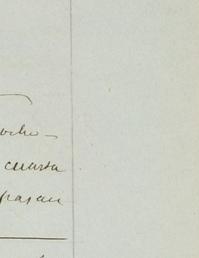 ocho
cuarta
pasan